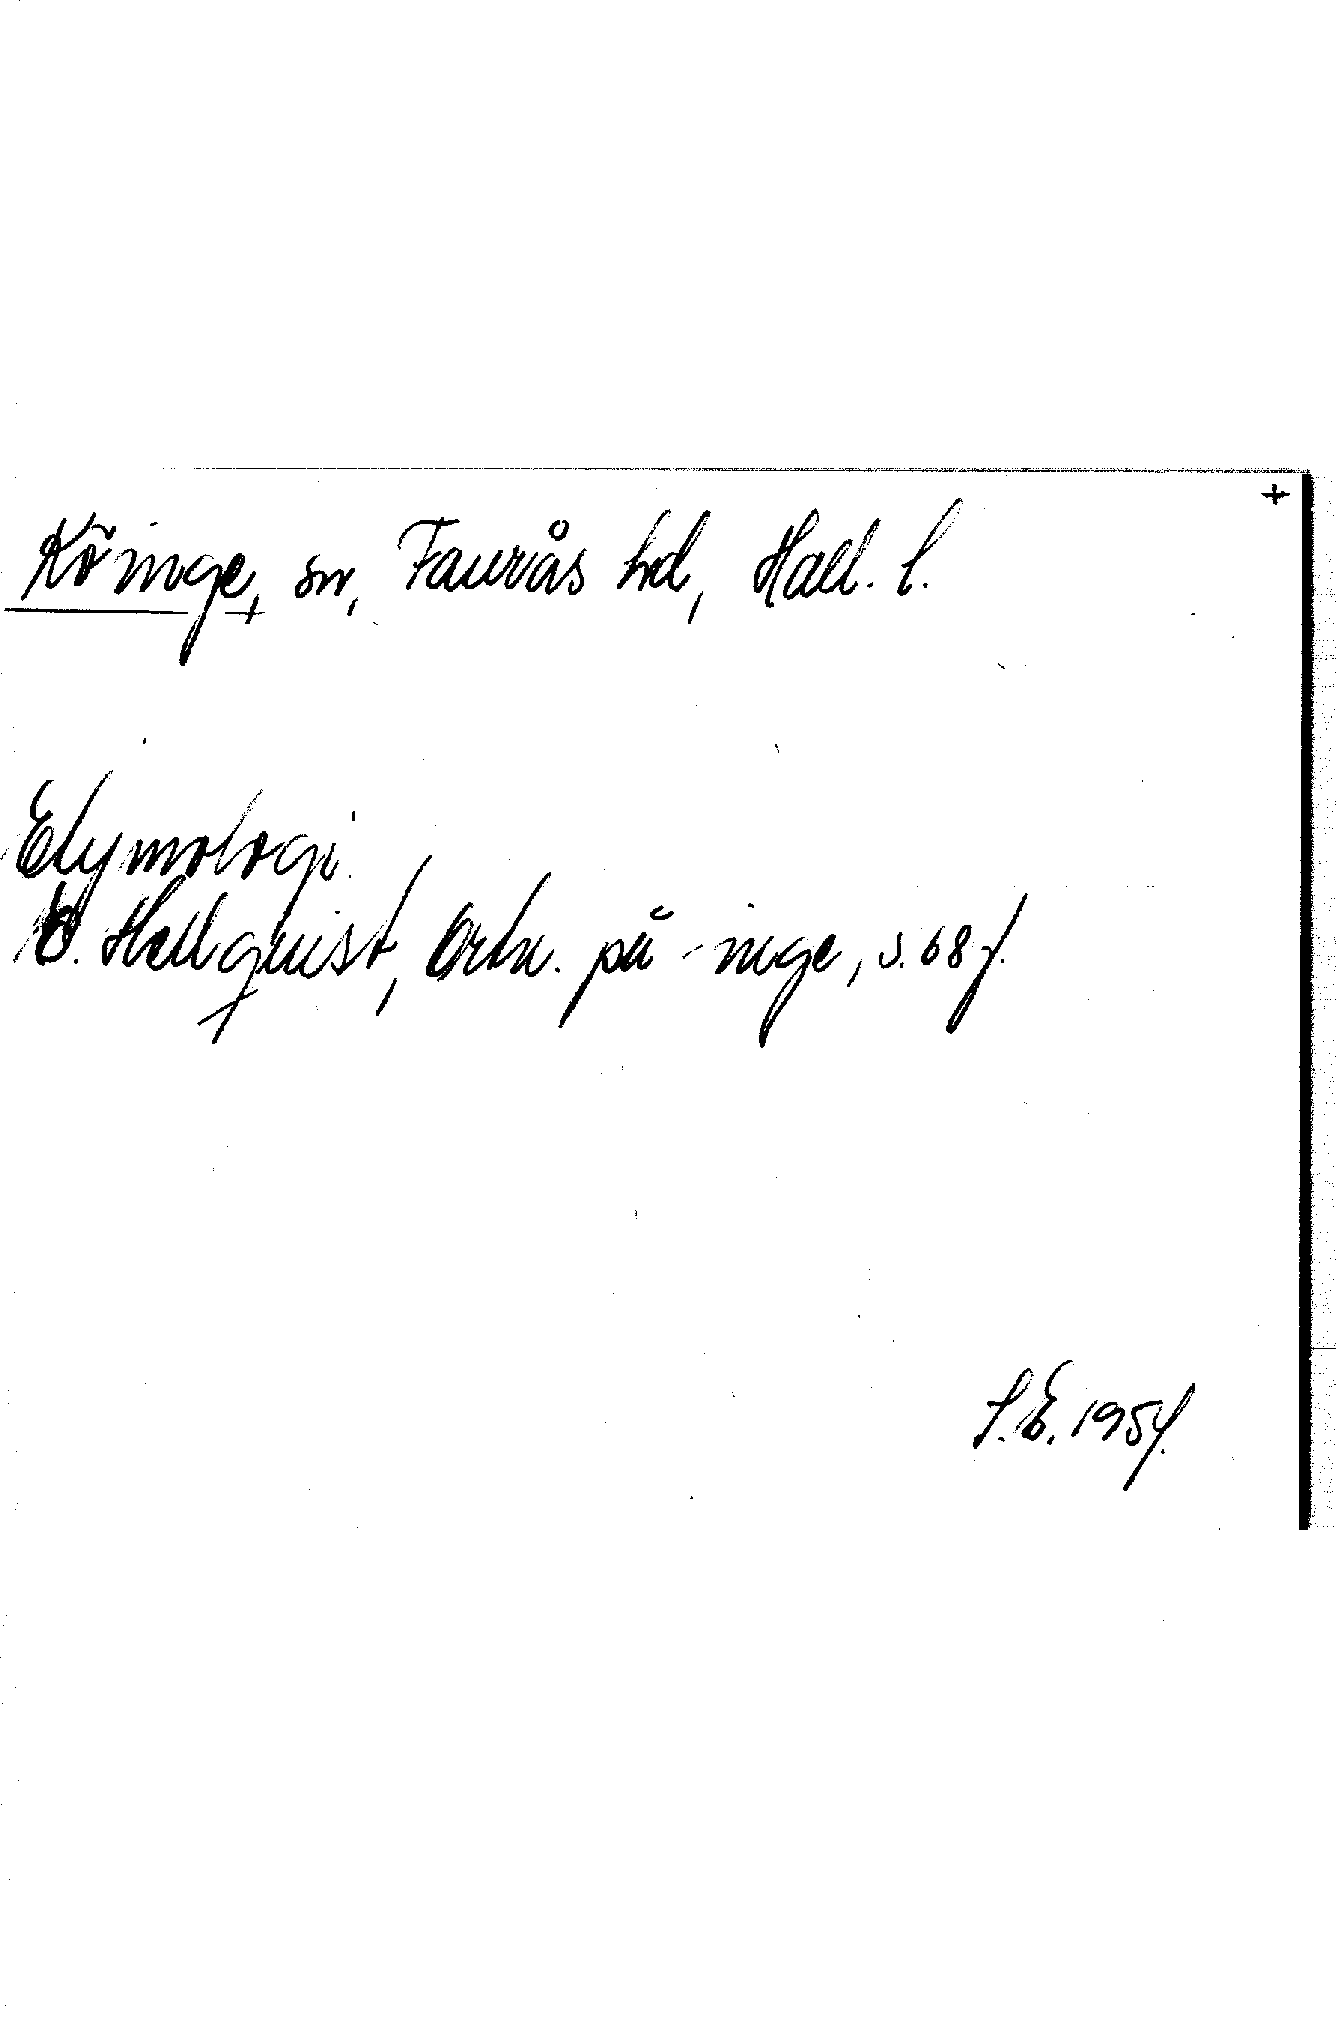 +
Köinge, sn, Faurås hd, Hall. l.
Etymologi.
E. Hellquist, Ortn. på -inge, s. 68 f.
S.E. 1954.